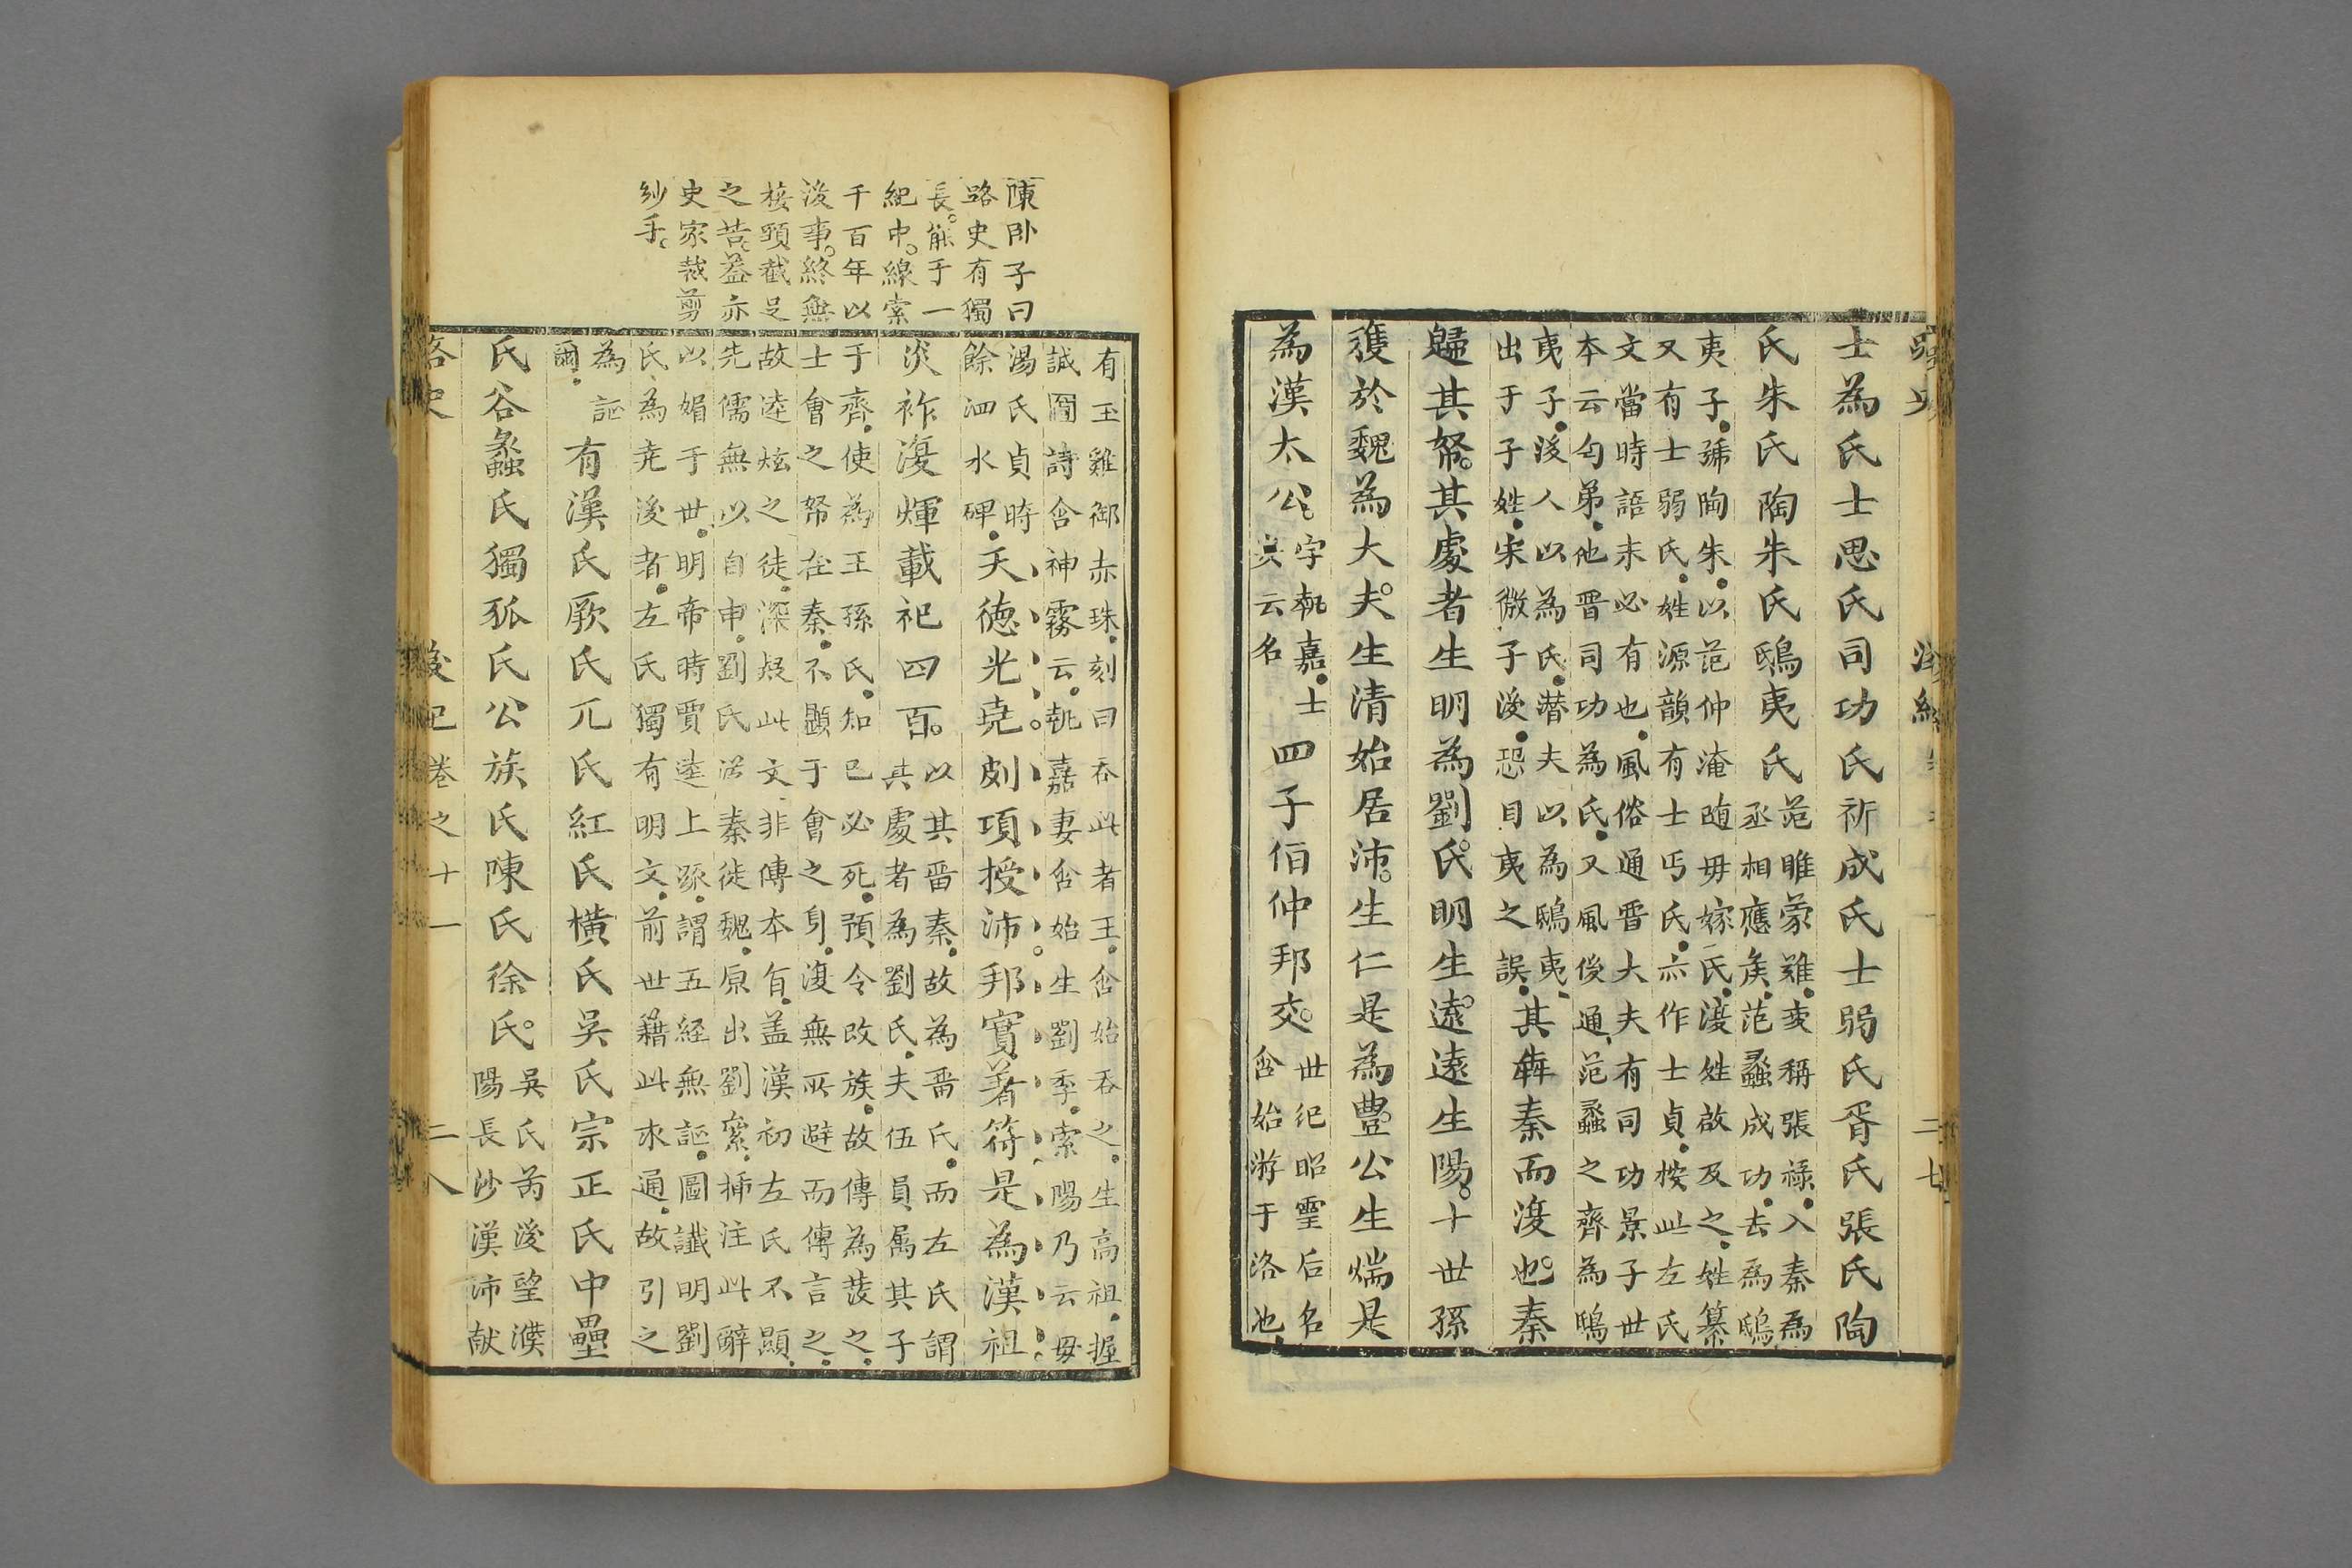 路史
二七
士為氏士思氏司功氏祈成氏士弱氏胥氏張氏陶
氏朱氏陶朱氏鴟夷氏
范睢蒙難変稱張禄入秦為
丞相應矦范蠡成功去為鴟
夷子號陶朱以范仲淹随毋嫁氏復姓啟及之姓纂
又有士弱氏姓源韻有士丐氏亦作士貞按此左氏
文當時語未必有也風俗通晋大夫有司功景子世
本云匄弟他晋司功為氏又風俊通范蠡之齊為鴟
夷子後人以為氏潜夫以為鴟夷
出于子姓宋微子後恐目夷之誤
其犇秦而復也。秦
歸其帑。其處者生明為劉氏。明生遠。遠生陽。十世孫
獲於魏為大夫。生清始居沛。生仁是為豊公生煓是
為漢太公。
字執嘉士
其云名
四子伯仲邦交。
世紀昭霊后名
含始游于洛池
陳卧子曰
路史有獨
長。能于一
紀中。線索
千百年以
後事。終無
接頸截足
之苦。葢亦
史家裁剪
紗手。
有玉雞御赤珠刻曰吞此者王含始吞之生高祖握
誠圖詩含神霧云執嘉妻含始生劉季索陽乃云毋
湯氏貞時
餘泗水碑
天徳光堯。刻項授沛。邦實著符是為漢祖。
炎祚復煇載祀四百。
以其晋秦故為晋氏而左氏謂
其處者為劉氏夫伍員属其子
于齊使為王孫氏知已必死預令改族故傳為發之
士會之帑在秦不顯于會之身復無所避而傳言之
故逵炫之徒深疑此文非傳本旨盖漢初左氏不顯
先儒無以自申劉氏從秦徙魏原出劉累揷注此辭
以媚于世明帝時賈逵上疏謂五経無証圖讖明劉
氏為尭後者左氏獨有明文前世藉此求通故引之
為証
爾
有漢氏厥氏兀氏紅氏橫氏吳氏宗正氏中壘
氏谷蠡氏獨孤氏公族氏陳氏徐氏。
吳氏芮後望濮
陽長沙漢沛献
路史 後紀卷之十一 二八